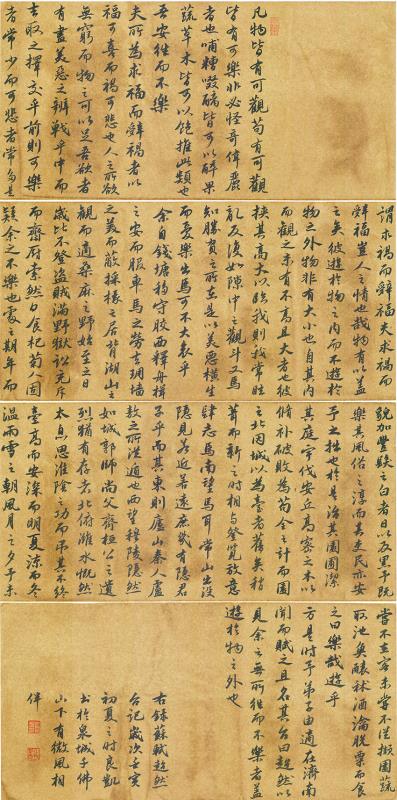 凡物皆有可觀苟有可觀
皆有可樂非必怪奇偉麗
者也哺糟啜醨皆可以醉果
蔬草木皆可以飽推此類也
吾安往而不樂
夫所為求福而辭禍者以
福可喜而禍可悲也人之所欲
無窮而物之可以足吾欲者
有盡美惡之辨戰乎中而
去取之擇交乎前則可樂
者常少而可悲者常多是
謂求禍而辭福夫求禍而
辭福豈人之情也哉物有以蓋
之矣彼遊於物之內而不遊於
物之外物非有大小也自其內
而觀之未有不高且大者也彼
挾其高大以臨我則我常眩
亂反復如隙中之觀斗又焉
知勝負之所在是以美惡橫生
而憂樂出焉可不大哀乎
余自錢塘移守膠西釋舟楫
之安而服車馬之勞去雕墻
之美而蔽採椽之居背湖山之
觀而適桑麻之野始至之日
歲比不登盜賊滿野獄訟充斥
而齋廚索然日食杞菊人固
疑余之不樂也處之期年而
貌加豐髮之白者日以反黑予既
樂其風俗之淳而其吏民亦安
予之拙也於是治其園圃潔
其庭宇伐安丘高密之木以
修補破敗為苟全之計而園
之北因城以為臺者舊矣稍
葺而新之時相與登覽放意
肆志焉南望馬耳常山出沒
隱見若近若遠庶幾有隱君
子乎而其東則廬山秦人盧
敖之所從遁也西望穆陵隱然
如城郭師尚父齊桓公之遺
烈猶有存者北俯濰水慨然
太息思淮陰之功而弔其不終
臺高而安深而明夏涼而冬
溫雨雪之朝風月之夕予未
嘗不在客未嘗不從擷園蔬
取池魚釀秫酒瀹脫粟而食
之曰樂哉遊乎
方是時予弟子由適在濟南
聞而賦之且名其台曰超然以
見余之無所往而不樂者蓋
遊於物之外也
右錄蘇軾超然
台記歲次壬寅
初夏之時良凱
書於泉城千佛
山下有微風相
伴